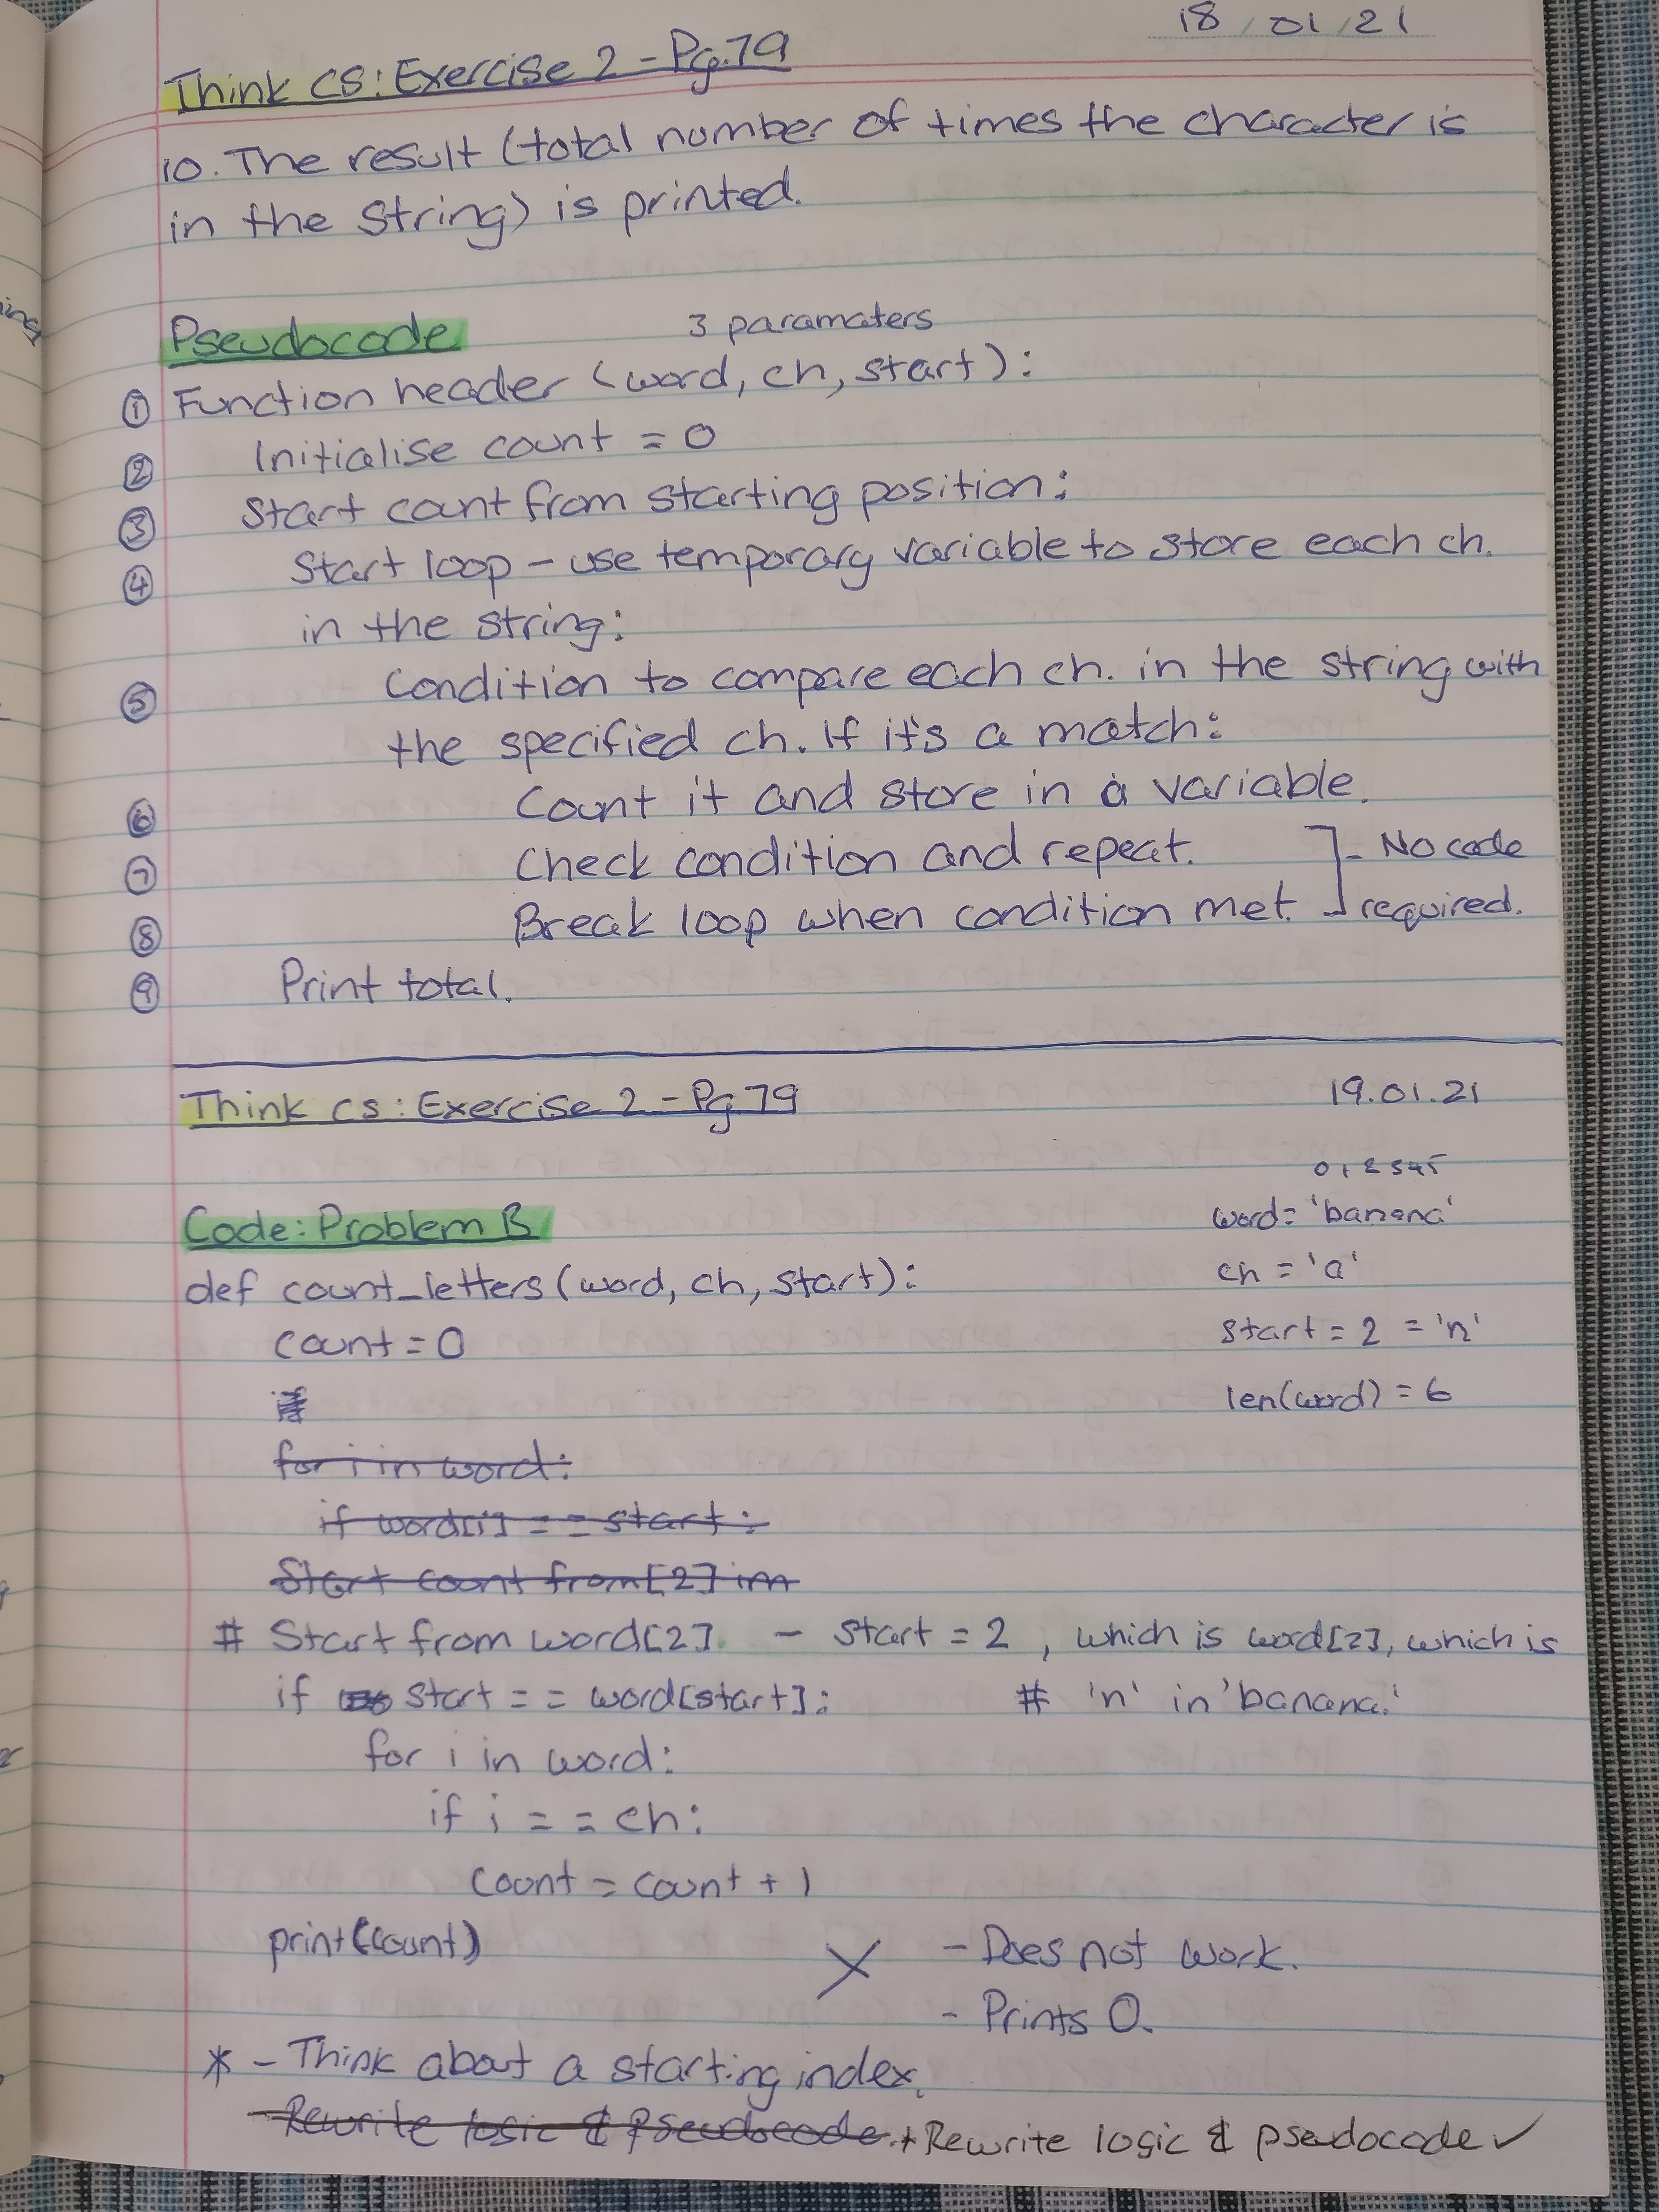 18/01/21
Think CS: Exercise 2 - Pg.79
10. The result (total number of times the character is
in the string) is printed.
Pseudocode
3 paramaters
① Function header (word, ch, start):
② Initialise count = 0
③ Start count from starting position:
④ Start loop - use temporary variable to store each ch.
in the string:
⑤ Condition to compare each ch. in the string with
the specified ch. If it's a match:
⑥ Count it and store in a variable.
⑦ Check condition and repeat. ] - No code
⑧ Break loop when condition met. required.
⑨ Print total.
Think CS: Exercise 2 - Pg.79 19.01.21
0 1 2 3 4 5
Code: Problem B word = 'banana'
def count_letters (word, ch, start): ch = 'a'
count = 0 start = 2 = 'n'
len(word) = 6
for i in word:
if word[i] == start:
Start count from [2] in
# Start from word[2]. - start = 2, which is word[2], which is
if start == word[start]: # 'n' in 'banana.'
for i in word:
if i == ch:
count = count + 1
print(count) X - Does not work.
- Prints 0.
* - Think about a starting index.
- Rewrite logic & Pseudocode. * Rewrite logic & pseudocode ✓